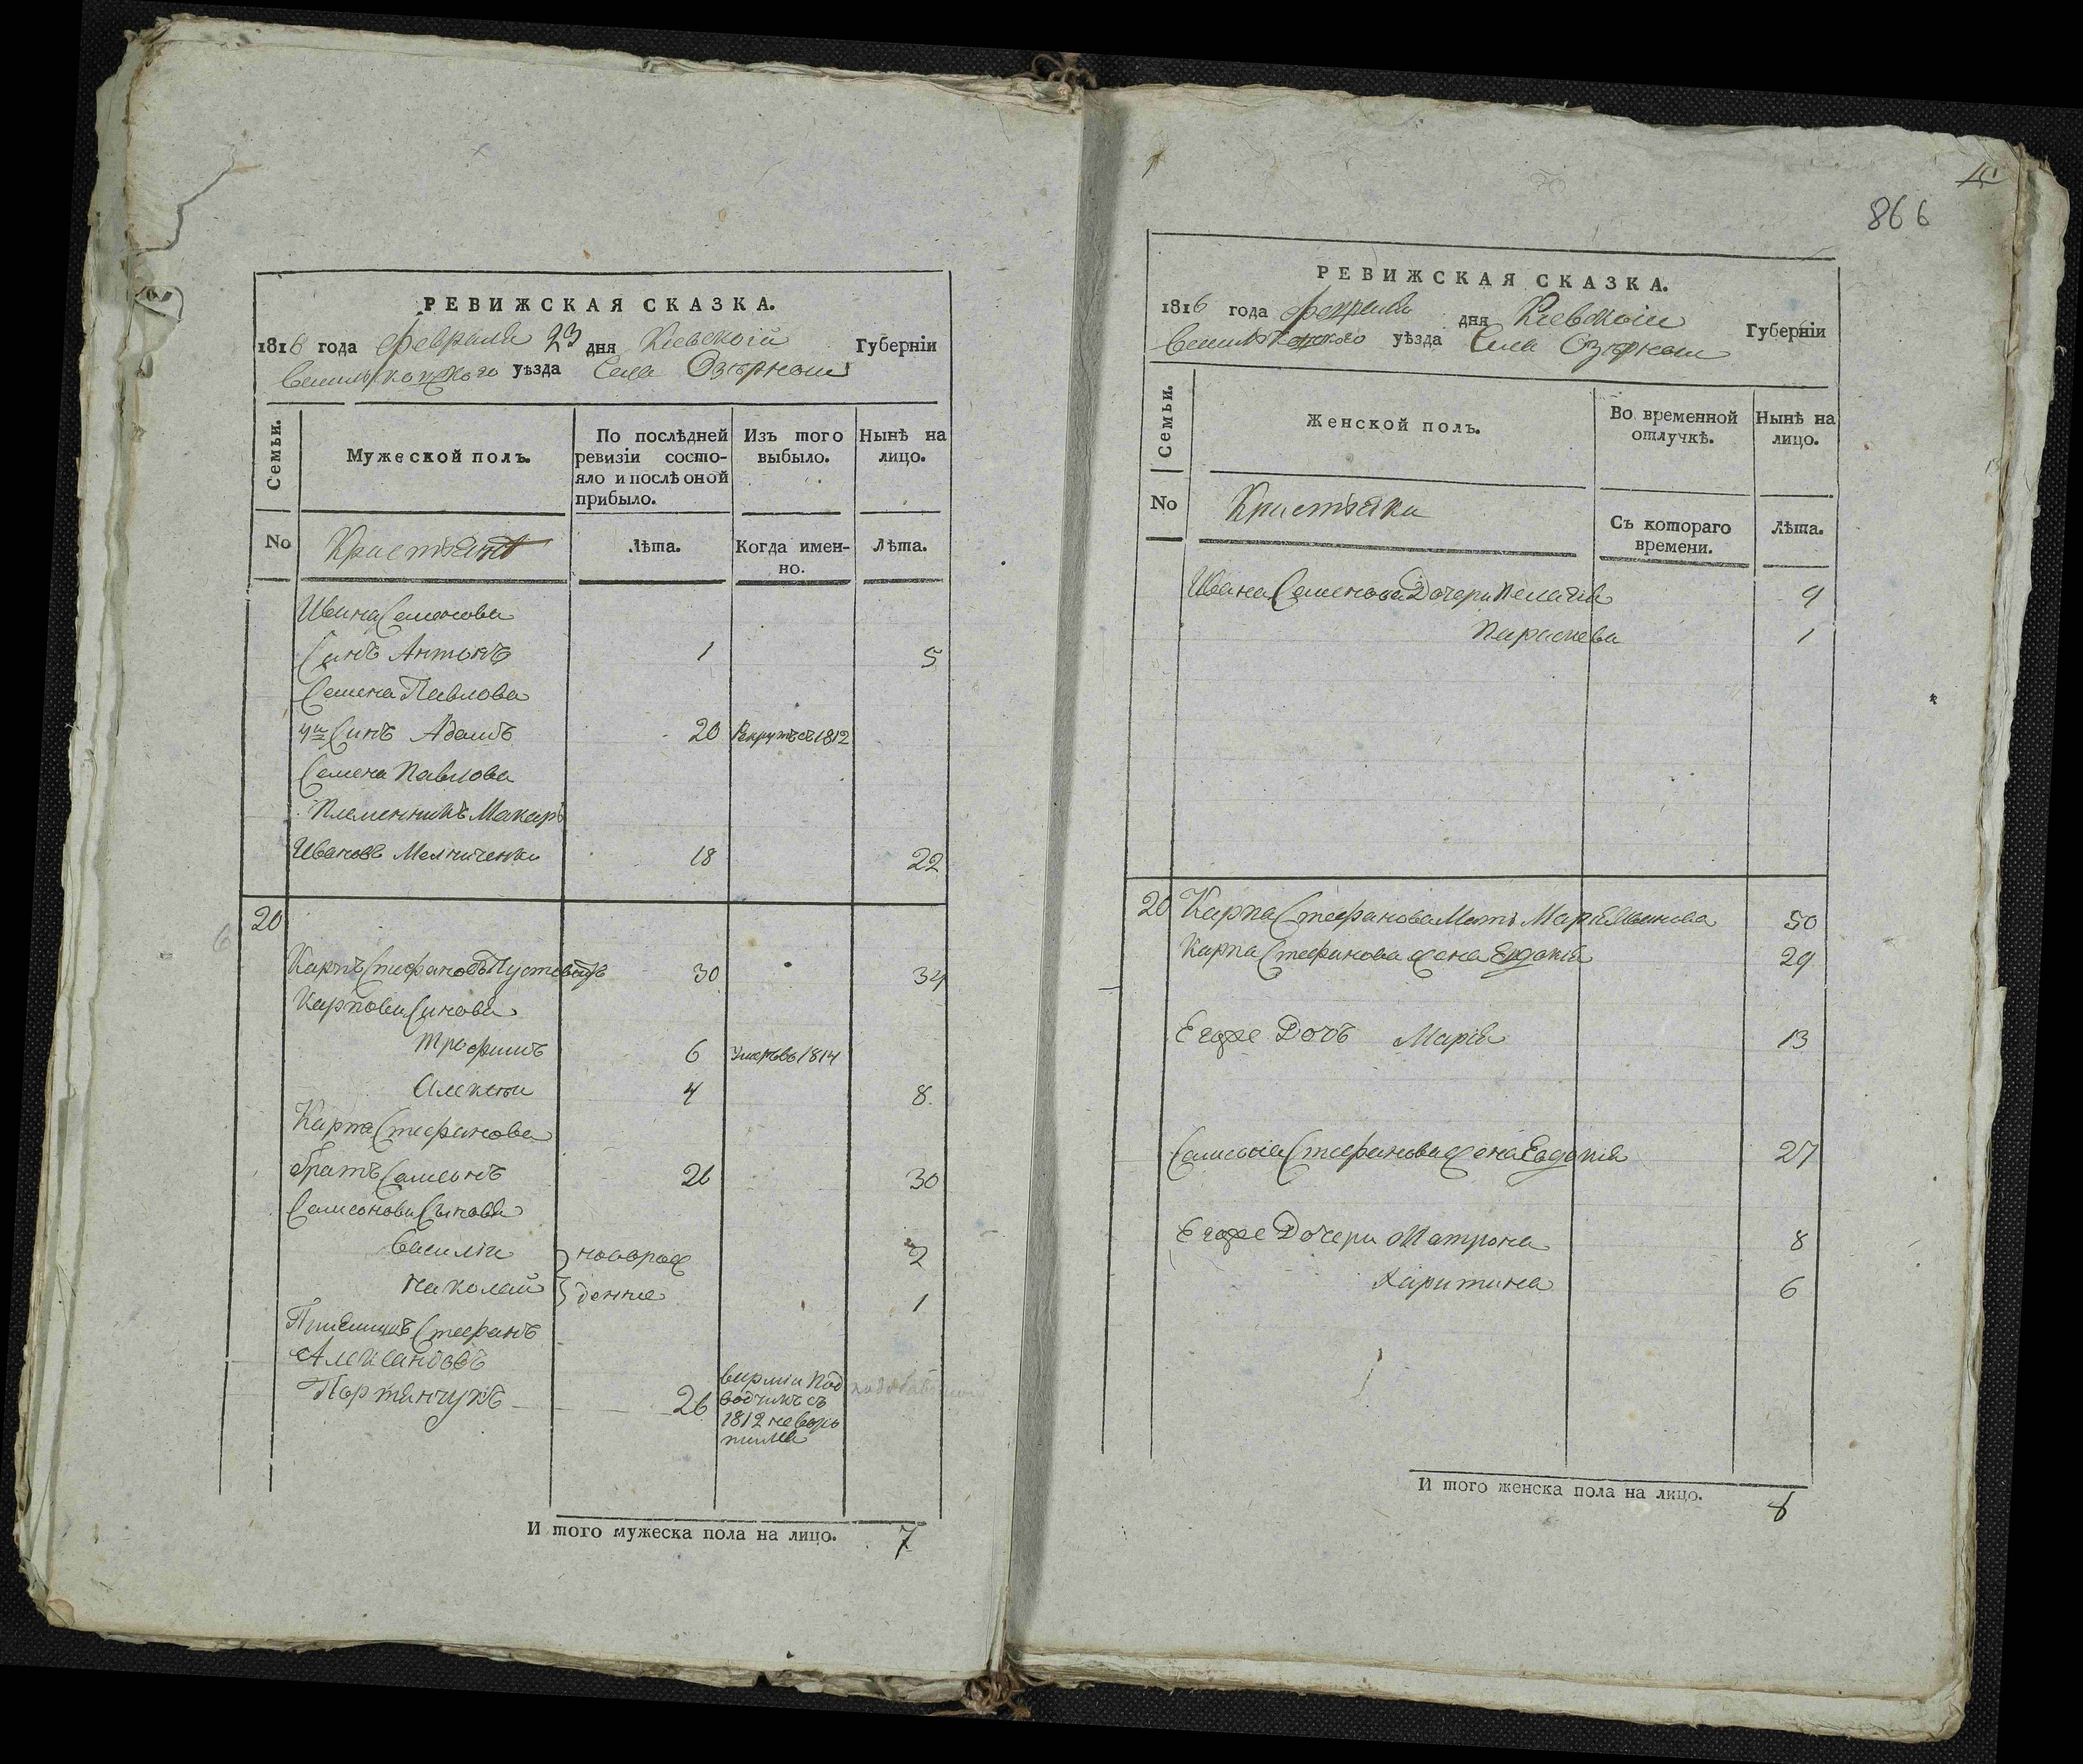 РЕВИЖСКАЯ СКАЗКА.
1816 года февраля 23 дня Кіевской Губерніи
Василькопкого уѣзда Села Озѣрной
Семьи.
Мужеской полъ.
По послѣдней ревизіи состо-
яло и послѣ оной
прибыло.
Изъ того
выбыло.
Нынѣ на
лицо.
No
Кристяне
Лѣта.
Когда имен-
но.
Лѣта.
Ивана Семенова
Синъ Антонъ 1 5
Семена Павлова
4й Синъ Адамъ 20 Рекрутъ съ 1812
Семена Павлова
Племенникъ Макаръ
Ивановъ Мелниченко 18 22
20
Карпъ Стефановъ 30 34
Карпови Синови
Трофимъ 6 Умеръ въ 1814
Алексѣй 4 8
Карпа Стефанова
Братъ Самсонъ 26 30
Самсонови Сынови
Василій новорож 2
Николай денніе 1
Пріемишъ Стефанъ
Александовъ
Портянчукъ 26
вармія под
водчикъ съ
1812 не воро
тился
И того мужеска пола на лицо. 7
866
РЕВИЖСКАЯ СКАЗКА.
1816 года февраля дня Кіевской Губерніи
Василькопкого уѣзда Села Озѣрной
Семьи.
Женской полъ.
Во временной
отлучкѣ.
Нынѣ на
лицо.
No
Кристянки
Съ котораго
времени.
Лѣта.
Ивана Семенова Дочери Пелагія 9
Параскева 1
20 Карпа Стефанова Мати Марія Иванова 50
Карпа Стефанова жена Евдокія 29
Егоже Дочъ Марія 13
Самсона Стефанова жена Евдокія 27
Егоже Дочери Матрона 8
Харитина 6
И того женска пола на лицо. 8